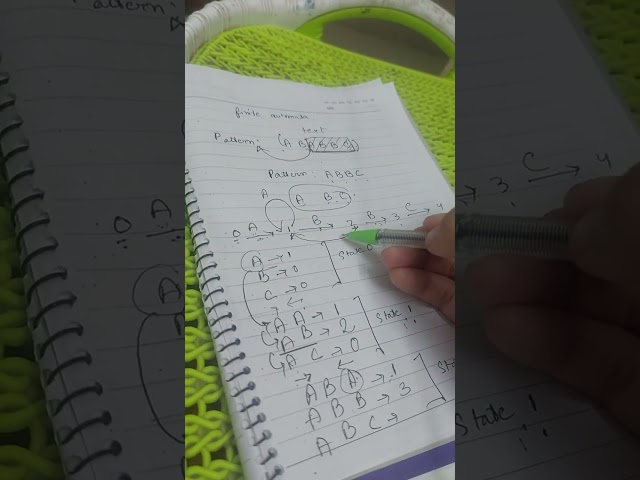 finite automata
text
Pattern: (A B A B B C)
Pattern: ABBC
A
A B C
0 A → 1 B → 2 B → 3 C → 4
A → 1
B → 0
C → 0
State 0
A A → 1
A B → 2
A C → 0
State 1
A B A → 1
A B B → 3
A B C →
State